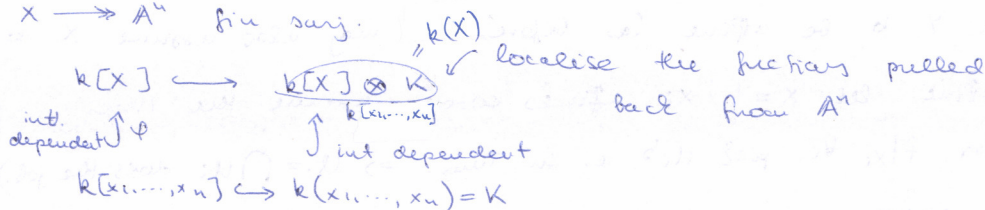 X ↠ 𝔸ⁿ fin surj.
k(X)
k[X] ↪ k[X] ⊗ K ← localise the functions pulled
k[x₁,...,xₙ] back from 𝔸ⁿ
intl. dependent ↑ φ ↑ int dependent
k[x₁,...,xₙ] ↪ k(x₁,...,xₙ) = K